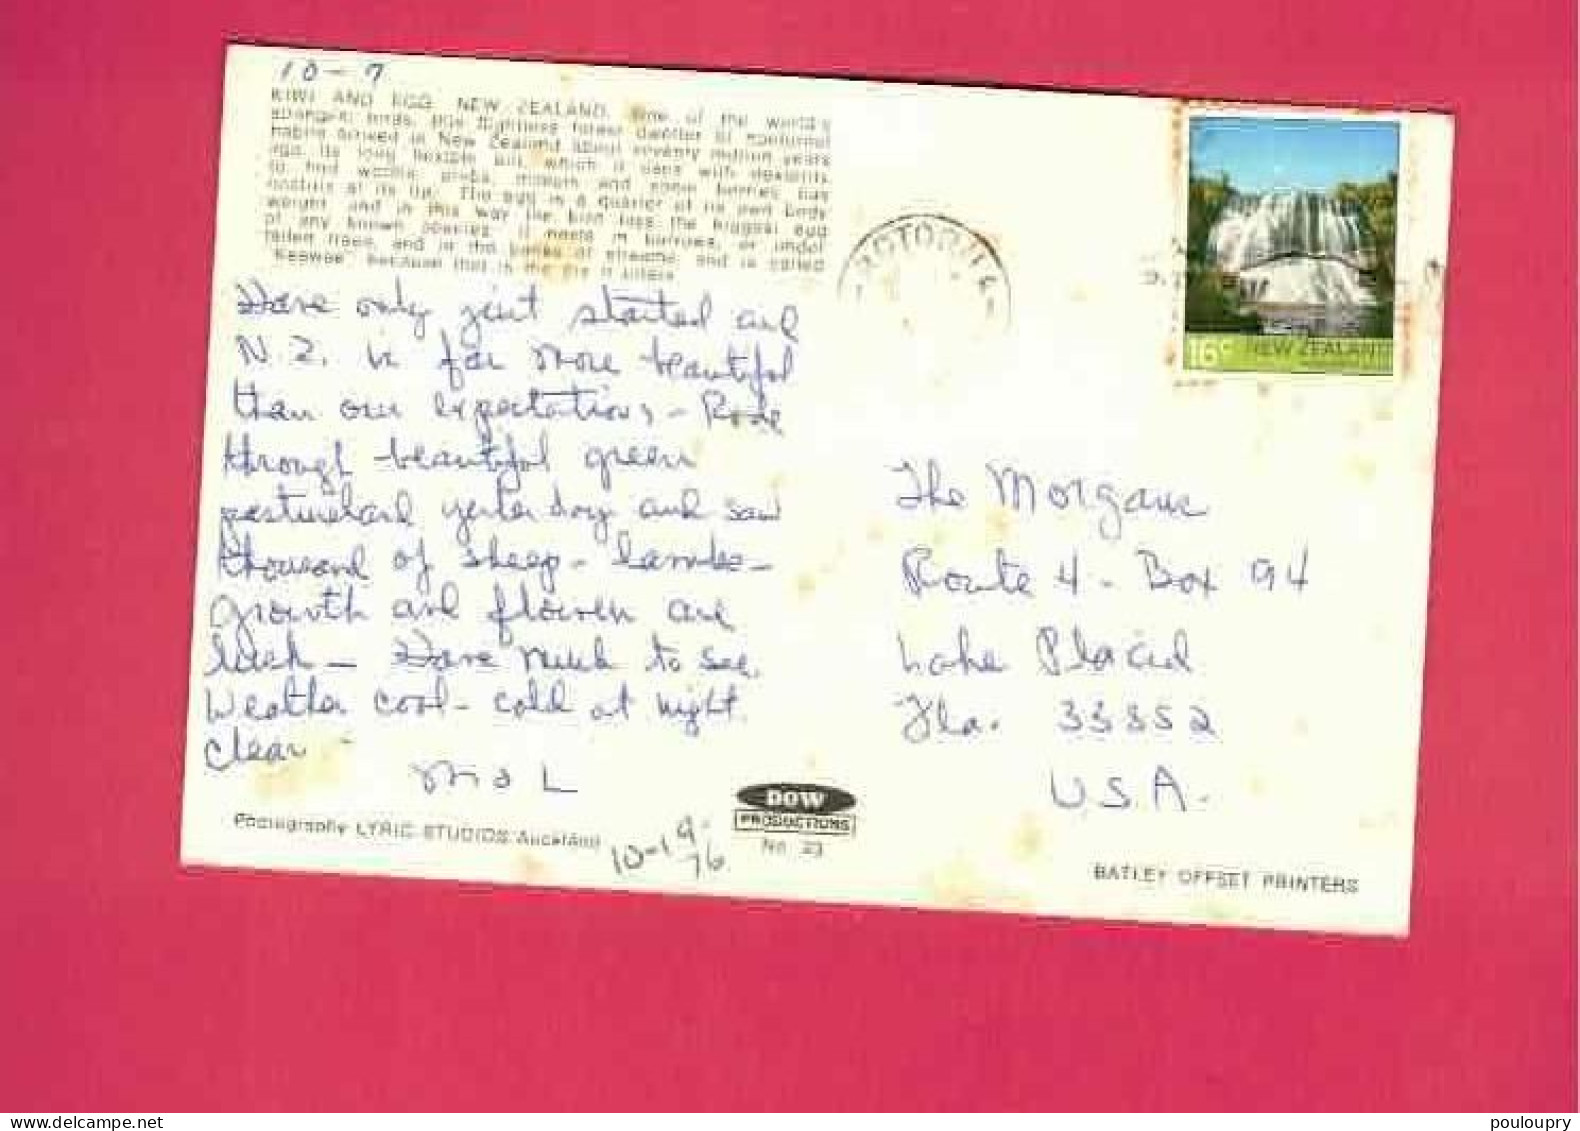 10-7
KIWI AND EGG, NEW ZEALAND. One of the world's
strangest birds, this flightless forest dweller of nocturnal
habits arrived in New Zealand about seventy million years
ago. Its long flexible bill, which it uses with dexterity
to find worms, grubs, insects and some berries, has
nostrils at its tip. The egg is a quarter of its own body
weight, and in this way the bird lays the biggest egg
of any known species. It nests in burrows, or under
fallen trees, and in the banks of streams, and is called
because that is the cry it utters.
Have only just started and
N.Z. is far more beautiful
than our expectations - Rode
through beautiful green
pastureland yesterday and saw
thousand of sheep - lambs -
growth and flowers are
lush - Have much to see.
Weather cool - cold at night
clear -
M & L
Photography LYRIC STUDIOS Auckland
10-19-76
DOW
PRODUCTIONS
No. 23
ROTORUA
16c NEW ZEALAND
The Morgans
Route 4 - Box 94
Lake Placid
Fla. 33852
U.S.A.
BATLEY OFFSET PRINTERS
delcampe.net
pouloupry